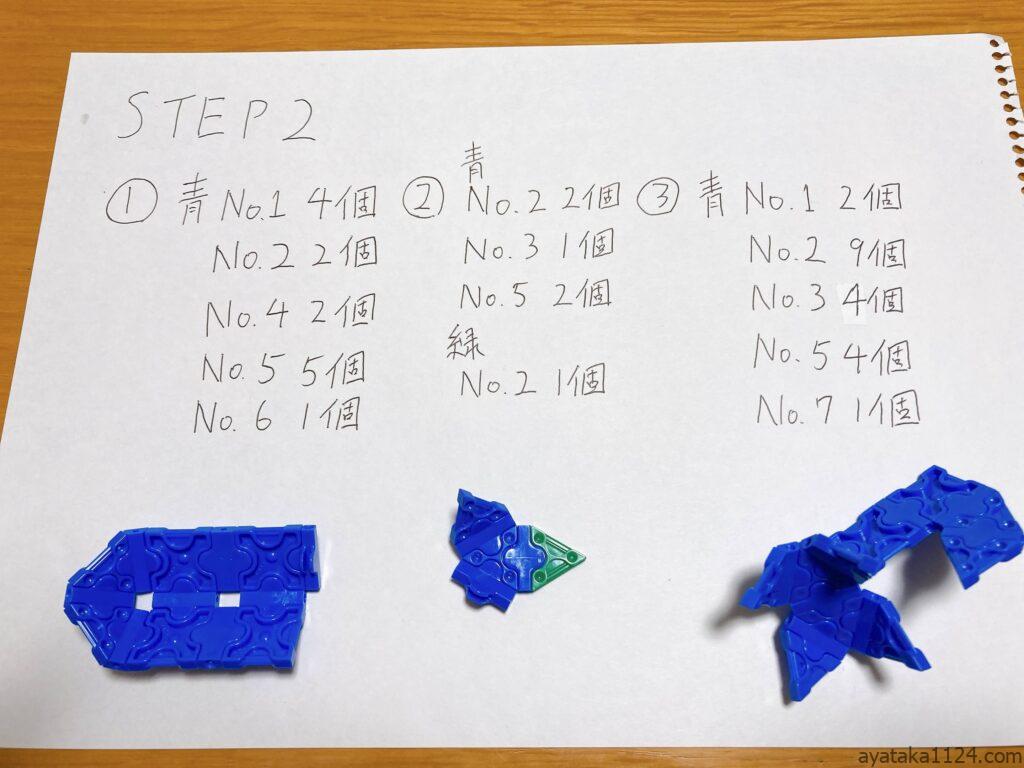 STEP2
① 青 No.1 4個
No.2 2個
No.4 2個
No.5 5個
No.6 1個
② 青
No.2 2個
No.3 1個
No.5 2個
緑
No.2 1個
③ 青 No.1 2個
No.2 9個
No.3 4個
No.5 4個
No.7 1個
ayataka1124.com